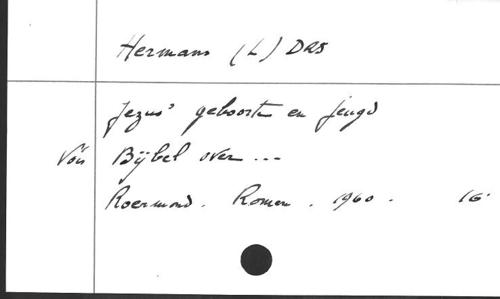 Hermans (L) Drs
Jezus' geboorte en jeugd
Voir Bijbel over ...
Roermond. Romen. 1960. 16°